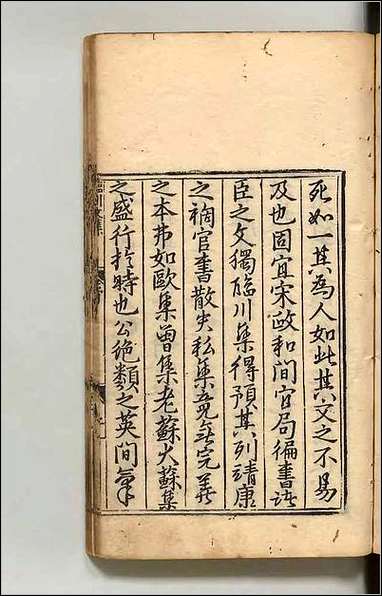 死如一其為人如此其文之不易
及也固宜宋政和間官局徧書諸
臣之文獨臨川集得預其列靖康
之禍官書散失私集竟無完善
之本弗如歐集曾集老蘇大蘇集
之盛行於時也公絶類之英間氣
臨川文集
序